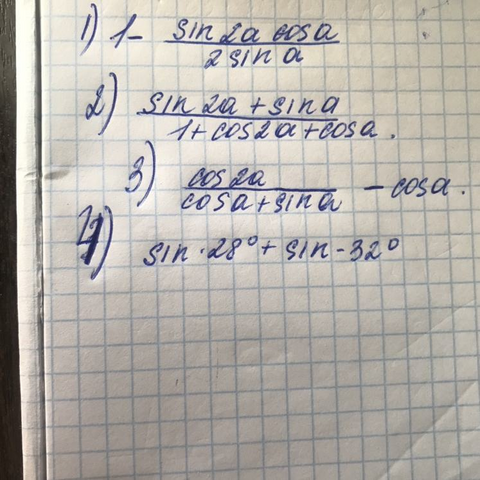 1) 1 - sin 2a cos a / 2 sin a
2) sin 2a + sin a / 1 + cos 2a + cos a.
3) cos 2a / cos a + sin a - cos a.
4) sin · 28° + sin - 32°